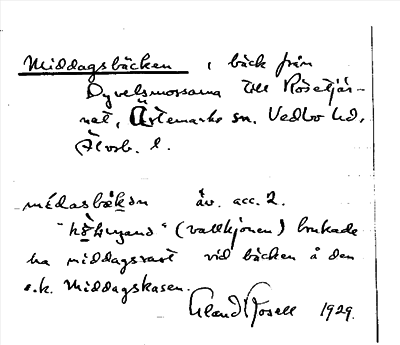 Middagsbäcken, bäck från
Dyvelsmossarna till Rösetjär-
net, Ärtemarks sn. Vedbo hd.
Älvsb. l.
médasbäkən äv. acc. 2.
(vallhjonen) brukade
ha middagsrast vid bäcken å den
s.k. Middagskasen.
Erland Rosell 1929.